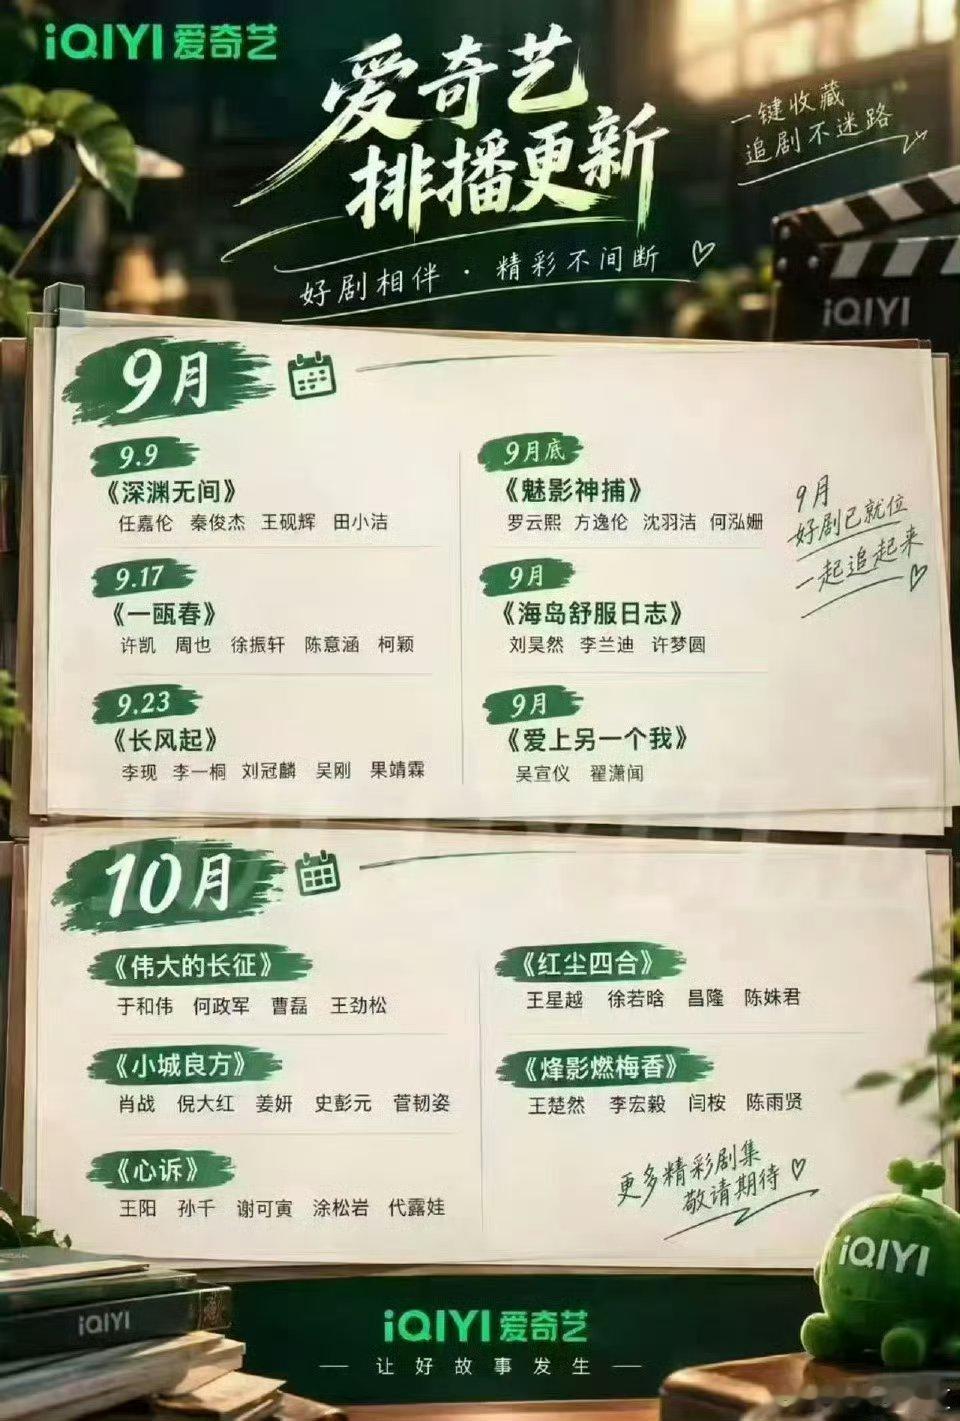 iQIYI 爱奇艺
爱奇艺
排播更新
一键收藏
追剧不迷路
好剧相伴 · 精彩不间断
iQIYI
9月
9.9
《深渊无间》
任嘉伦 秦俊杰 王砚辉 田小洁
9.17
《一瓯春》
许凯 周也 徐振轩 陈意涵 柯颖
9.23
《长风起》
李现 李一桐 刘冠麟 吴刚 果靖霖
9月底
《魅影神捕》
罗云熙 方逸伦 沈羽洁 何泓姗
9月
《海岛舒服日志》
刘昊然 李兰迪 许梦圆
9月
《爱上另一个我》
吴宣仪 翟潇闻
9月
好剧已就位
一起追起来
10月
《伟大的长征》
于和伟 何政军 曹磊 王劲松
《小城良方》
肖战 倪大红 姜妍 史彭元 菅韧姿
《心诉》
王阳 孙千 谢可寅 涂松岩 代露娃
《红尘四合》
王星越 徐若晗 昌隆 陈姝君
《烽影燃梅香》
王楚然 李宏毅 闫桉 陈雨贤
更多精彩剧集
敬请期待
iQIYI
iQIYI
iQIYI 爱奇艺
让好故事发生